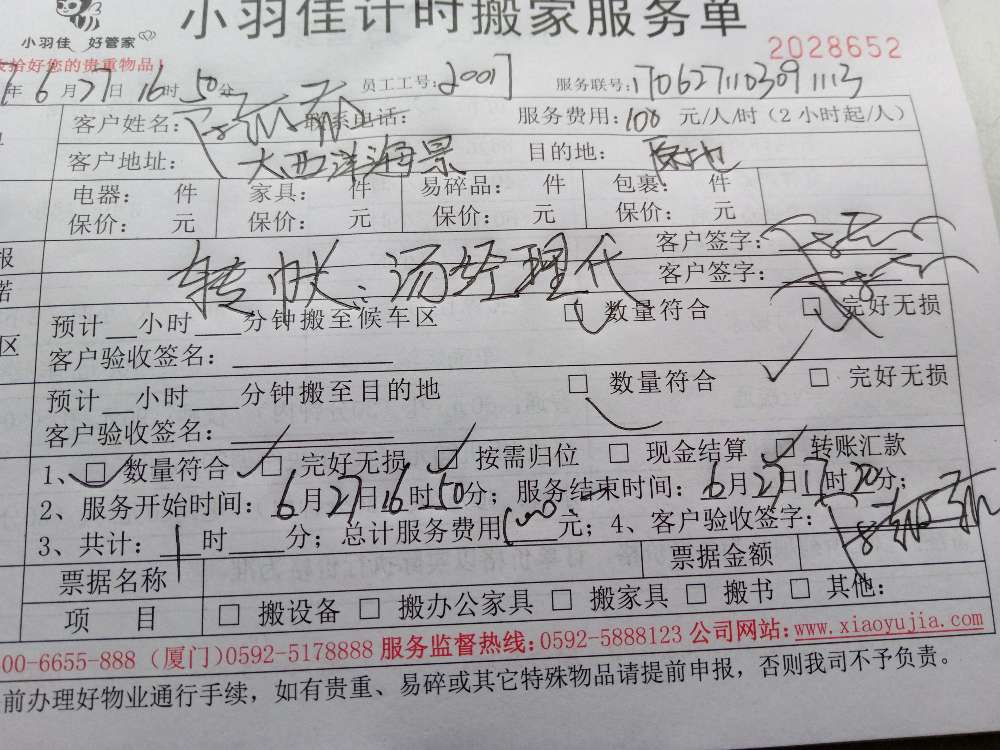 小羽佳计时搬家服务单
小羽佳 好管家
好您的贵重物品！
2028652
年6月27日16时50分 员工工号：20017 服务联号：1706271103091113
客户姓名： 联系电话： 服务费用：100 元/人/时（2小时起/人）
客户地址：大西洋海景 目的地：原地
电器： 件 家具： 件 易碎品： 件 包裹： 件
保价： 元 保价： 元 保价： 元 保价： 元
客户签字：
转帐：汤经理代
客户签字：
预计__小时___分钟搬至候车区 □ 数量符合 □ 完好无损
客户验收签名：
预计__小时___分钟搬至目的地 □ 数量符合 □ 完好无损
客户验收签名：
1、□ 数量符合 □ 完好无损 □ 按需归位 □ 现金结算 □ 转账汇款
2、服务开始时间：6月27日16时50分；服务结束时间：6月27日17时20分；
3、共计：1时____分；总计服务费用 元；4、客户验收签字：
票据名称 票据金额
项 目 □ 搬设备 □ 搬办公家具 □ 搬家具 □ 搬书 □ 其他：
00-6655-888（厦门）0592-5178888 服务监督热线：0592-5888123 公司网站：www.xiaoyujia.com
前办理好物业通行手续，如有贵重、易碎或其它特殊物品请提前申报，否则我司不予负责。